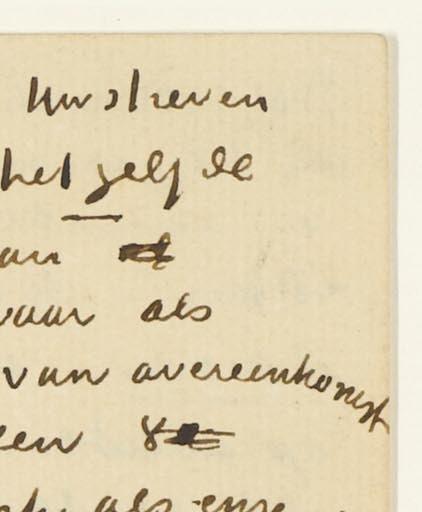 Uw streven
het zelfde
van
waar als
van overeenkomst
een
als onze